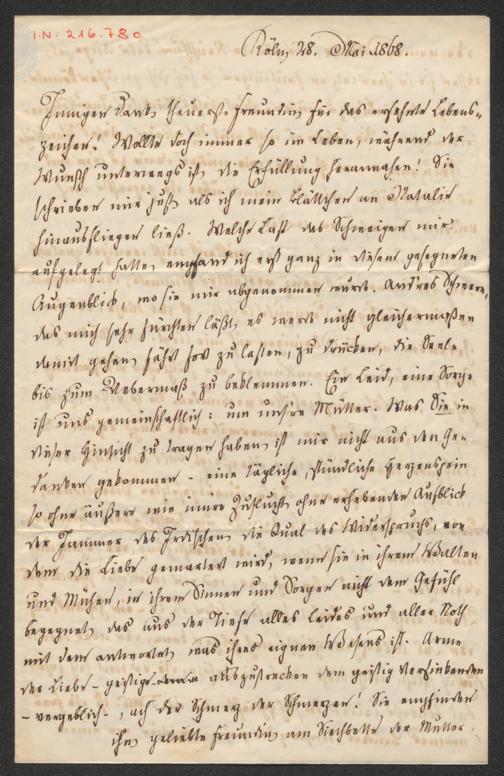 I.N. 216.780
Köln 28. Mai 1868.
Innigen Dank, theuerste Freundin für das ersehnte Lebens-
zeichen! Wollte doch immer so im Leben, während der
Wunsch unterwegs ist, die Erfüllung herannahen! Sie
schrieben mir just als ich mein Blättchen an Natalie
hinausfliegen ließ. Welche Last das Schweigen mir
aufgelegt hatte, empfand ich erst ganz in diesem gesegneten
Augenblick, wo sie mir abgenommen wurde. Andres Schwere,
das mich sehr fürchten läßt, es werde nicht gleichermaßen
damit gehen, fährt fort zu lasten, zu drücken, die Seele
bis zum Uebermaß zu beklemmen. Ein Leid, eine Sorge
ist uns gemeinschaftlich: um unsre Mütter. Was Sie in
dieser Hinsicht zu tragen haben, ist mir nicht aus den Ge-
danken gekommen – eine tägliche, stündliche Herzenspein
so ohne äußere wie innre Zuflucht, ohne erhebenden Aufblick
der Jammer des Irdischen, die Qual des Widerspruchs, von
dem die Liebe gemartert wird, wenn sie in ihrem Walten
und Mühen, in ihrem Sinnen und Sorgen nicht dem Gefühl
begegnet, das aus der Tiefe alles Leides und aller Noth
mit dem antwortet, was ihres eignen Wesens ist. Arme
der Liebe – geistige auszustrecken dem geistig Versinkenden
– vergeblich –, ach der Schmerz der Schmerzen! Sie empfinden
ihn, geliebte Freundin, am Siechbette der Mutter,